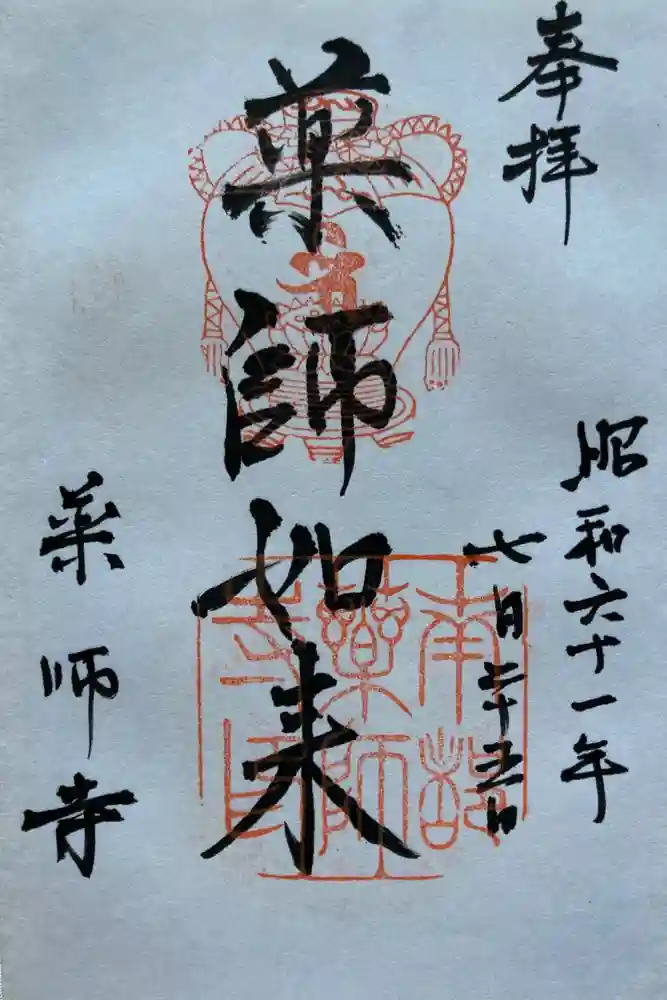 奉拝
昭和六十一年
七月二十五日
薬師如来
薬師寺
南都
薬師
寺印